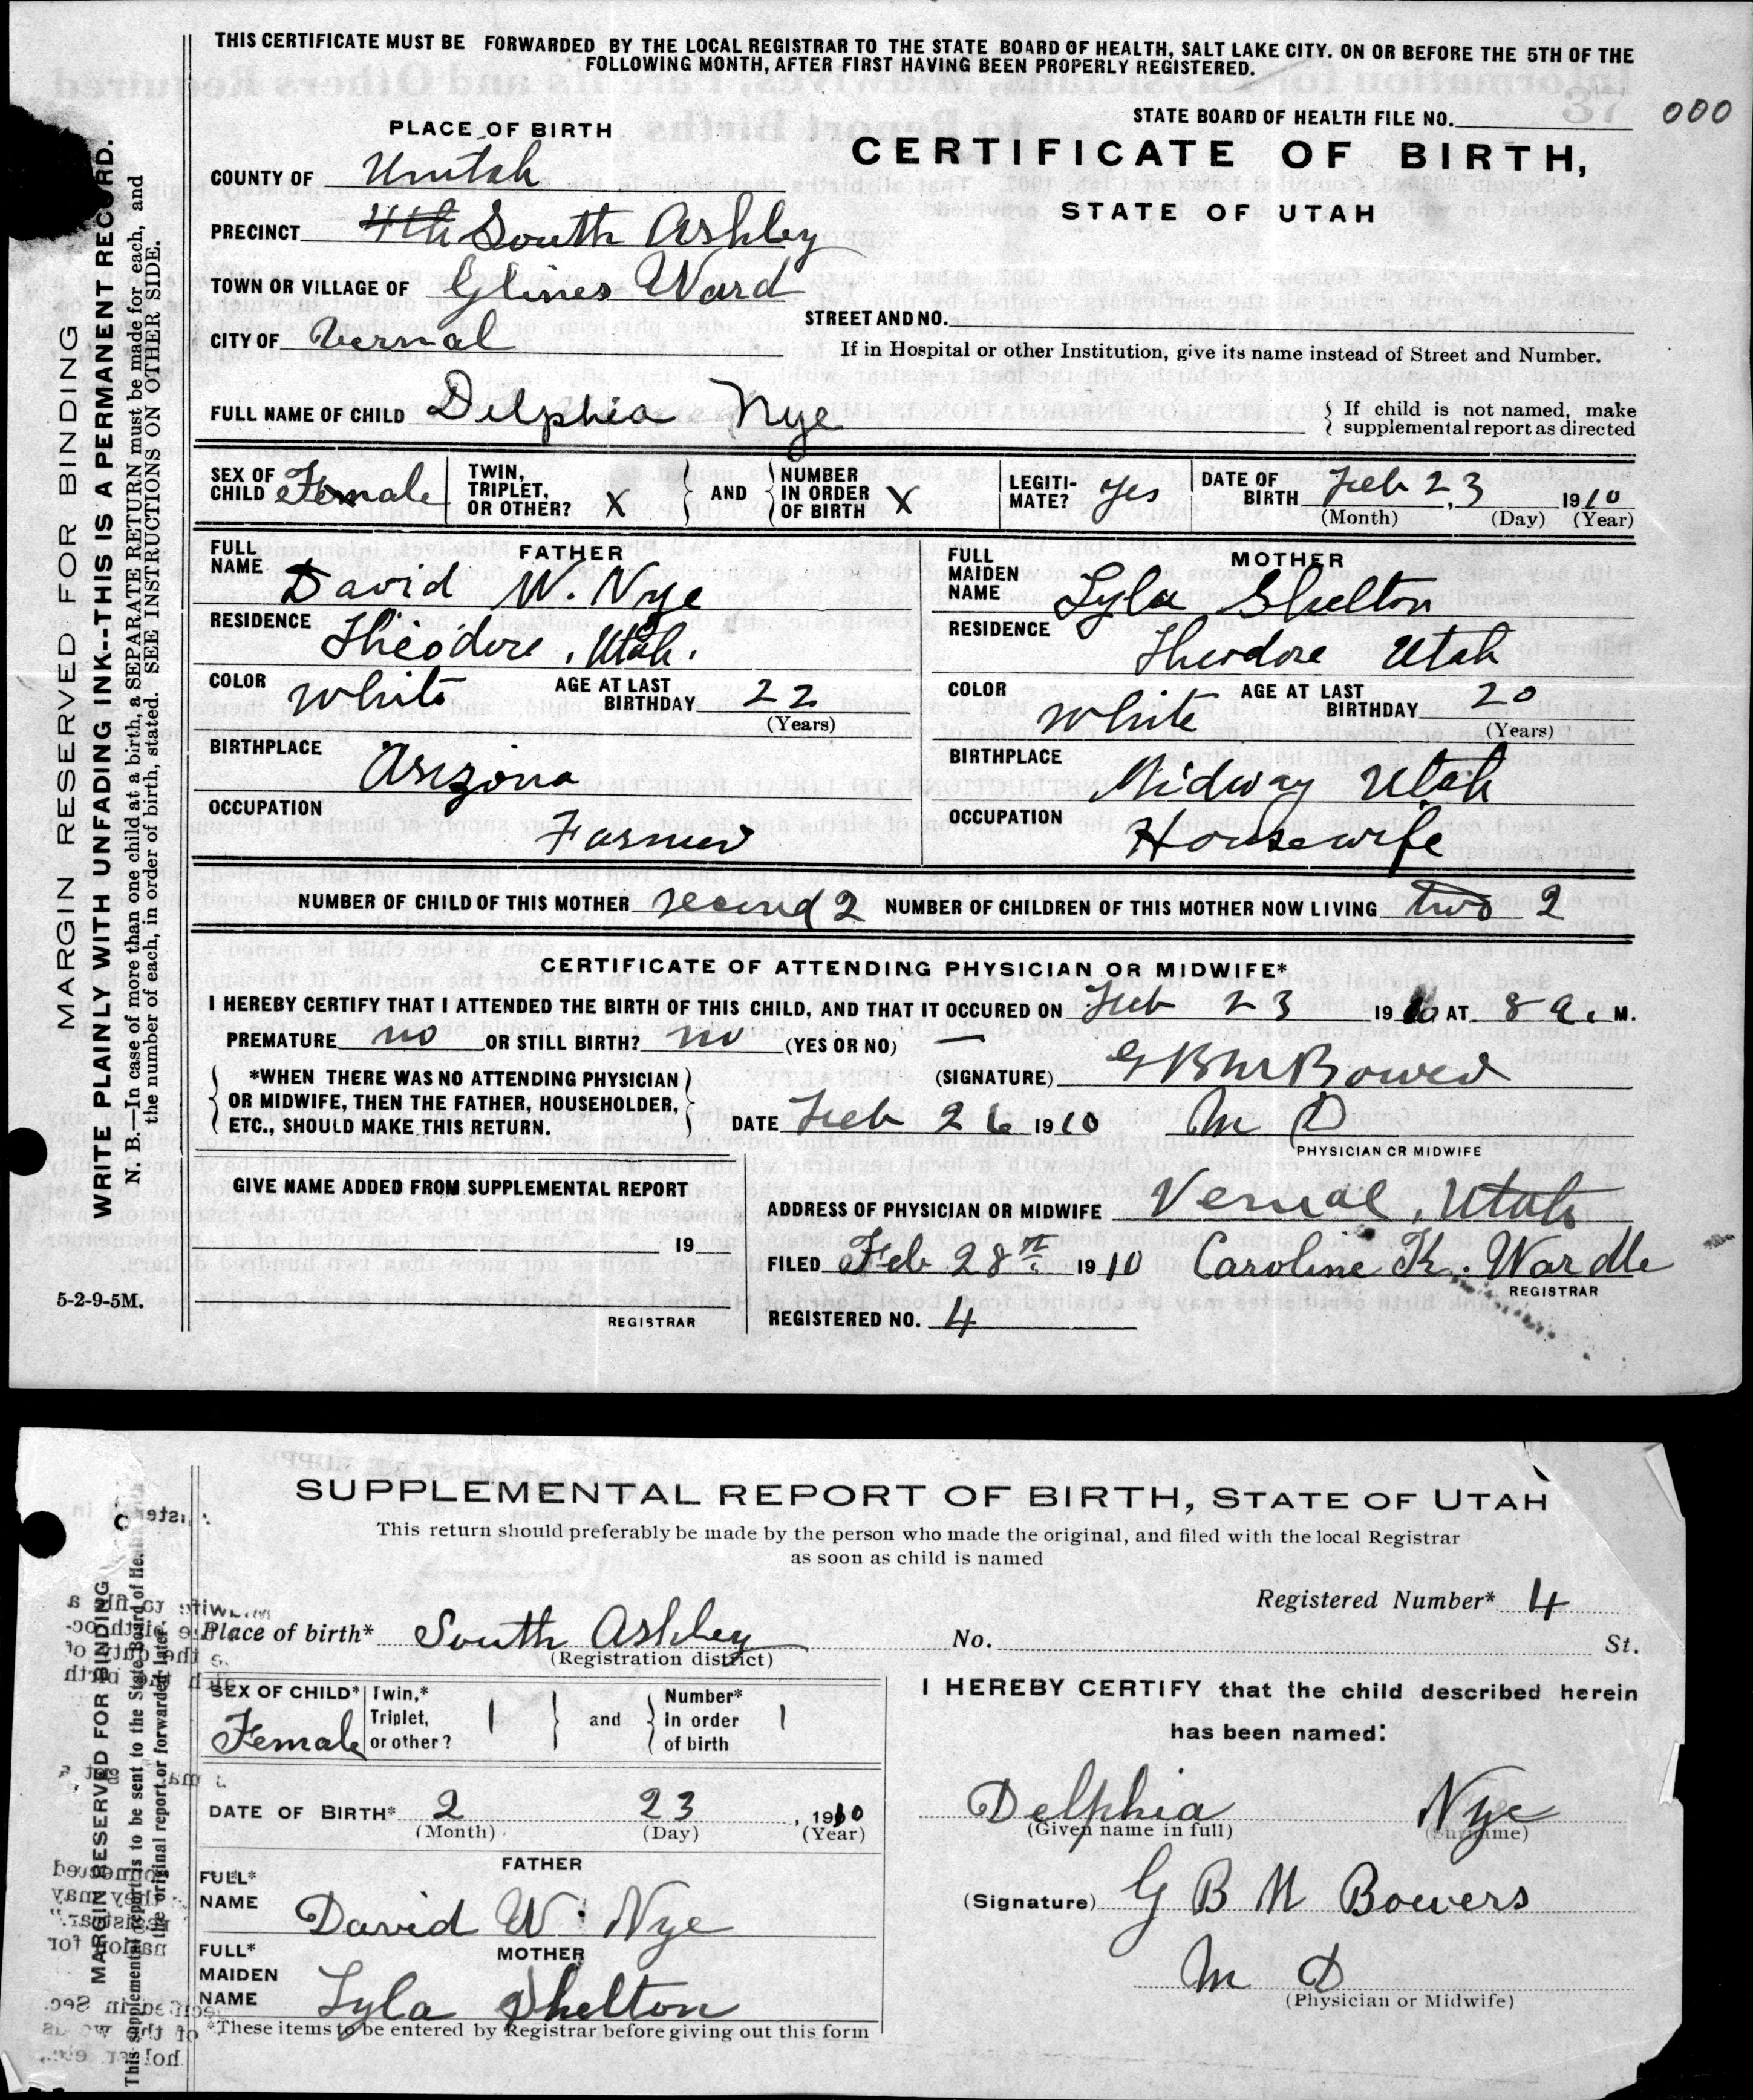 THIS CERTIFICATE MUST BE FORWARDED BY THE LOCAL REGISTRAR TO THE STATE BOARD OF HEALTH, SALT LAKE CITY. ON OR BEFORE THE 5TH OF THE
FOLLOWING MONTH, AFTER FIRST HAVING BEEN PROPERLY REGISTERED.
STATE BOARD OF HEALTH FILE NO. 37 000
PLACE OF BIRTH
CERTIFICATE OF BIRTH,
STATE OF UTAH
COUNTY OF Uintah
PRECINCT 4th South Ashley
TOWN OR VILLAGE OF Glines Ward
STREET AND NO.
CITY OF Vernal
If in Hospital or other Institution, give its name instead of Street and Number.
FULL NAME OF CHILD Delphia Nye
If child is not named, make
supplemental report as directed
SEX OF CHILD Female TWIN, TRIPLET, OR OTHER? X AND NUMBER IN ORDER OF BIRTH X LEGITI-MATE? yes DATE OF BIRTH Feb 23, 1910
(Month) (Day) (Year)
FATHER
FULL NAME David W. Nye
RESIDENCE Theodore, Utah.
COLOR White AGE AT LAST BIRTHDAY 22
(Years)
BIRTHPLACE Arizona
OCCUPATION Farmer
MOTHER
FULL MAIDEN NAME Lyla Shelton
RESIDENCE Theodore Utah
COLOR White AGE AT LAST BIRTHDAY 20
(Years)
BIRTHPLACE Midway Utah
OCCUPATION Housewife
NUMBER OF CHILD OF THIS MOTHER second 2 NUMBER OF CHILDREN OF THIS MOTHER NOW LIVING two 2
CERTIFICATE OF ATTENDING PHYSICIAN OR MIDWIFE*
I HEREBY CERTIFY THAT I ATTENDED THE BIRTH OF THIS CHILD, AND THAT IT OCCURED ON Feb 23 1910, AT 8 a. M.
PREMATURE no OR STILL BIRTH? no (YES OR NO) —
*WHEN THERE WAS NO ATTENDING PHYSICIAN
OR MIDWIFE, THEN THE FATHER, HOUSEHOLDER,
ETC., SHOULD MAKE THIS RETURN.
(SIGNATURE) G B M Bowers
DATE Feb 26 1910 M D
PHYSICIAN OR MIDWIFE
GIVE NAME ADDED FROM SUPPLEMENTAL REPORT
19
REGISTRAR
ADDRESS OF PHYSICIAN OR MIDWIFE Vernal, Utah
FILED Feb 28th 1910 Caroline K. Wardle
REGISTRAR
REGISTERED NO. 4
5-2-9-5M.
MARGIN RESERVED FOR BINDING
WRITE PLAINLY WITH UNFADING INK--THIS IS A PERMANENT RECORD.
N. B.—In case of more than one child at a birth, a SEPARATE RETURN must be made for each, and
the number of each, in order of birth, stated. SEE INSTRUCTIONS ON OTHER SIDE.
SUPPLEMENTAL REPORT OF BIRTH, STATE OF UTAH
This return should preferably be made by the person who made the original, and filed with the local Registrar
as soon as child is named
Registered Number* 4
Place of birth* South Ashley No. St.
(Registration district)
SEX OF CHILD* Female Twin,* Triplet, or other? | and Number* In order of birth |
DATE OF BIRTH* 2 23, 1910
(Month) (Day) (Year)
FATHER
FULL* NAME David W. Nye
MOTHER
FULL* MAIDEN NAME Lyla Shelton
*These items to be entered by Registrar before giving out this form
I HEREBY CERTIFY that the child described herein
has been named:
Delphia Nye
(Given name in full) (Surname)
(Signature) G B M Bowers
M D
(Physician or Midwife)
MARGIN RESERVED FOR BINDING
This supplemental report is to be sent to the State Board of Health
the original report or forwarded later.